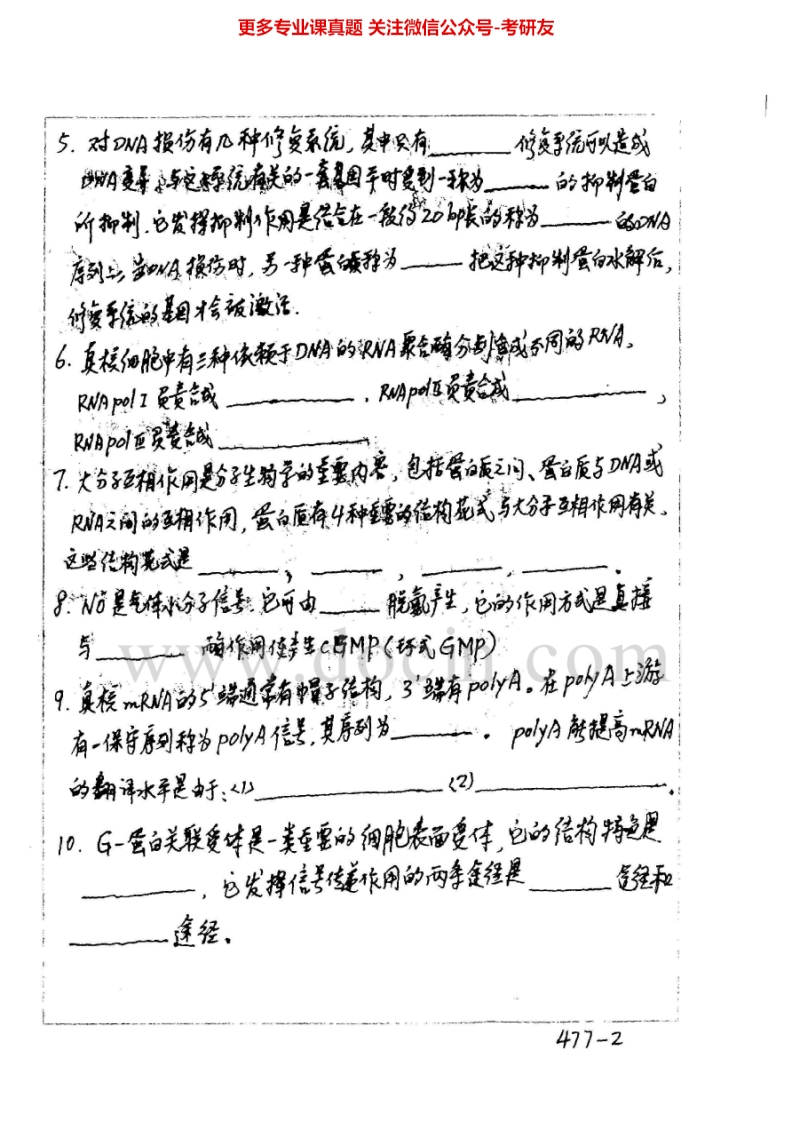 更多专业课真题 关注微信公众号-考研友
5. 对DNA损伤有几种修复系统，其中只有______修复系统可以造成
DNA变异，与这系统有关的一套基因平时受到一称为______的抑制蛋白
所抑制，它发挥抑制作用是结合在一段约20bp长的称为______的DNA
序列上，当DNA损伤时，另一种蛋白称为______把这种抑制蛋白水解后，
修复系统的基因才会被激活.
6. 真核细胞中有三种依赖于DNA的RNA聚合酶分别合成不同的RNA，
RNApolⅠ负责合成____________，RNApolⅡ负责合成____________，
RNApolⅢ负责合成____________
7. 大分子互相作用是分子生物学的重要内容，包括蛋白质之间、蛋白质与DNA或
RNA之间的互相作用，蛋白质有4种重要的结构花式与大分子互相作用有关。
这些结构花式是______，______，______，______。
8. NO是气体小分子信号，它可由______脱氨产生，它的作用方式是直接
与______酶作用使产生cGMP（环式GMP）
www.docin.com
9. 真核mRNA的5'端通常有帽子结构，3'端有polyA。在polyA上游
有一保守序列称为polyA信号，其序列为______。polyA能提高mRNA
的翻译水平是由于：<1>____________<2>____________.
10. G-蛋白关联受体是一类重要的细胞表面受体，它的结构特色是
______，它发挥信号传递作用的两条途径是______途径和
______途径。
477-2